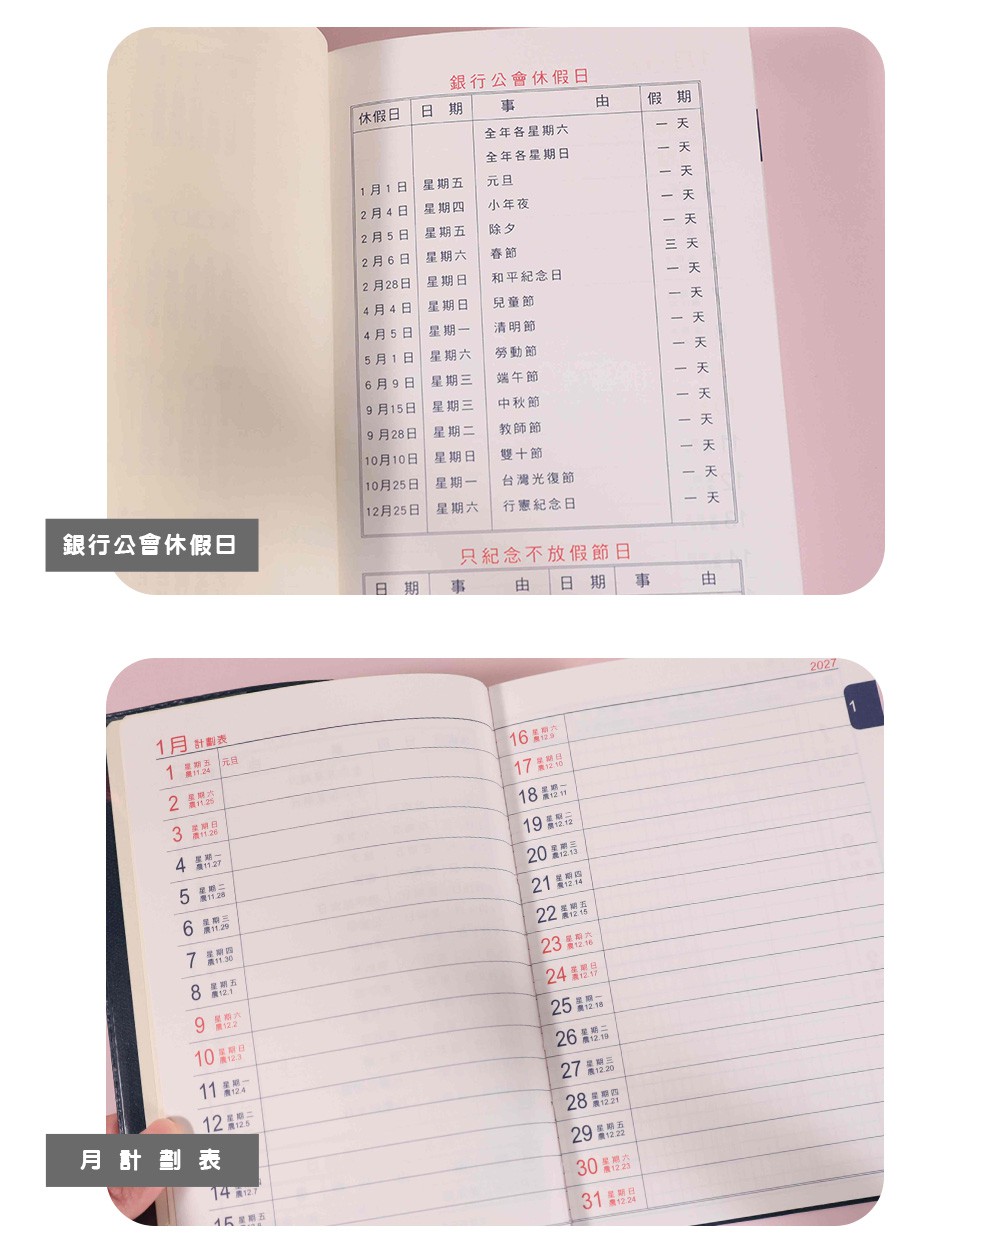 銀行公會休假日
休假日 日期 事由 假期
全年各星期六 一天
全年各星期日 一天
1月1日 星期五 元旦 一天
2月4日 星期四 小年夜 一天
2月5日 星期五 除夕 一天
2月6日 星期六 春節 三天
2月28日 星期日 和平紀念日 一天
4月4日 星期日 兒童節 一天
4月5日 星期一 清明節 一天
5月1日 星期六 勞動節 一天
6月9日 星期三 端午節 一天
9月15日 星期三 中秋節 一天
9月28日 星期二 教師節 一天
10月10日 星期日 雙十節 一天
10月25日 星期一 台灣光復節 一天
12月25日 星期六 行憲紀念日 一天
只紀念不放假節日
日期 事由 日期 事由
銀行公會休假日
2027
1
1月 計劃表
1 星期五 農11.24 元旦
2 星期六 農11.25
3 星期日 農11.26
4 星期一 農11.27
5 星期二 農11.28
6 星期三 農11.29
7 星期四 農11.30
8 星期五 農12.1
9 星期六 農12.2
10 星期日 農12.3
11 星期一 農12.4
12 星期二 農12.5
14 農12.7
15 星期五
16 星期六 農12.9
17 星期日 農12.10
18 星期一 農12.11
19 星期二 農12.12
20 星期三 農12.13
21 星期四 農12.14
22 星期五 農12.15
23 星期六 農12.16
24 星期日 農12.17
25 星期一 農12.18
26 星期二 農12.19
27 星期三 農12.20
28 星期四 農12.21
29 星期五 農12.22
30 星期六 農12.23
31 星期日 農12.24
月計劃表